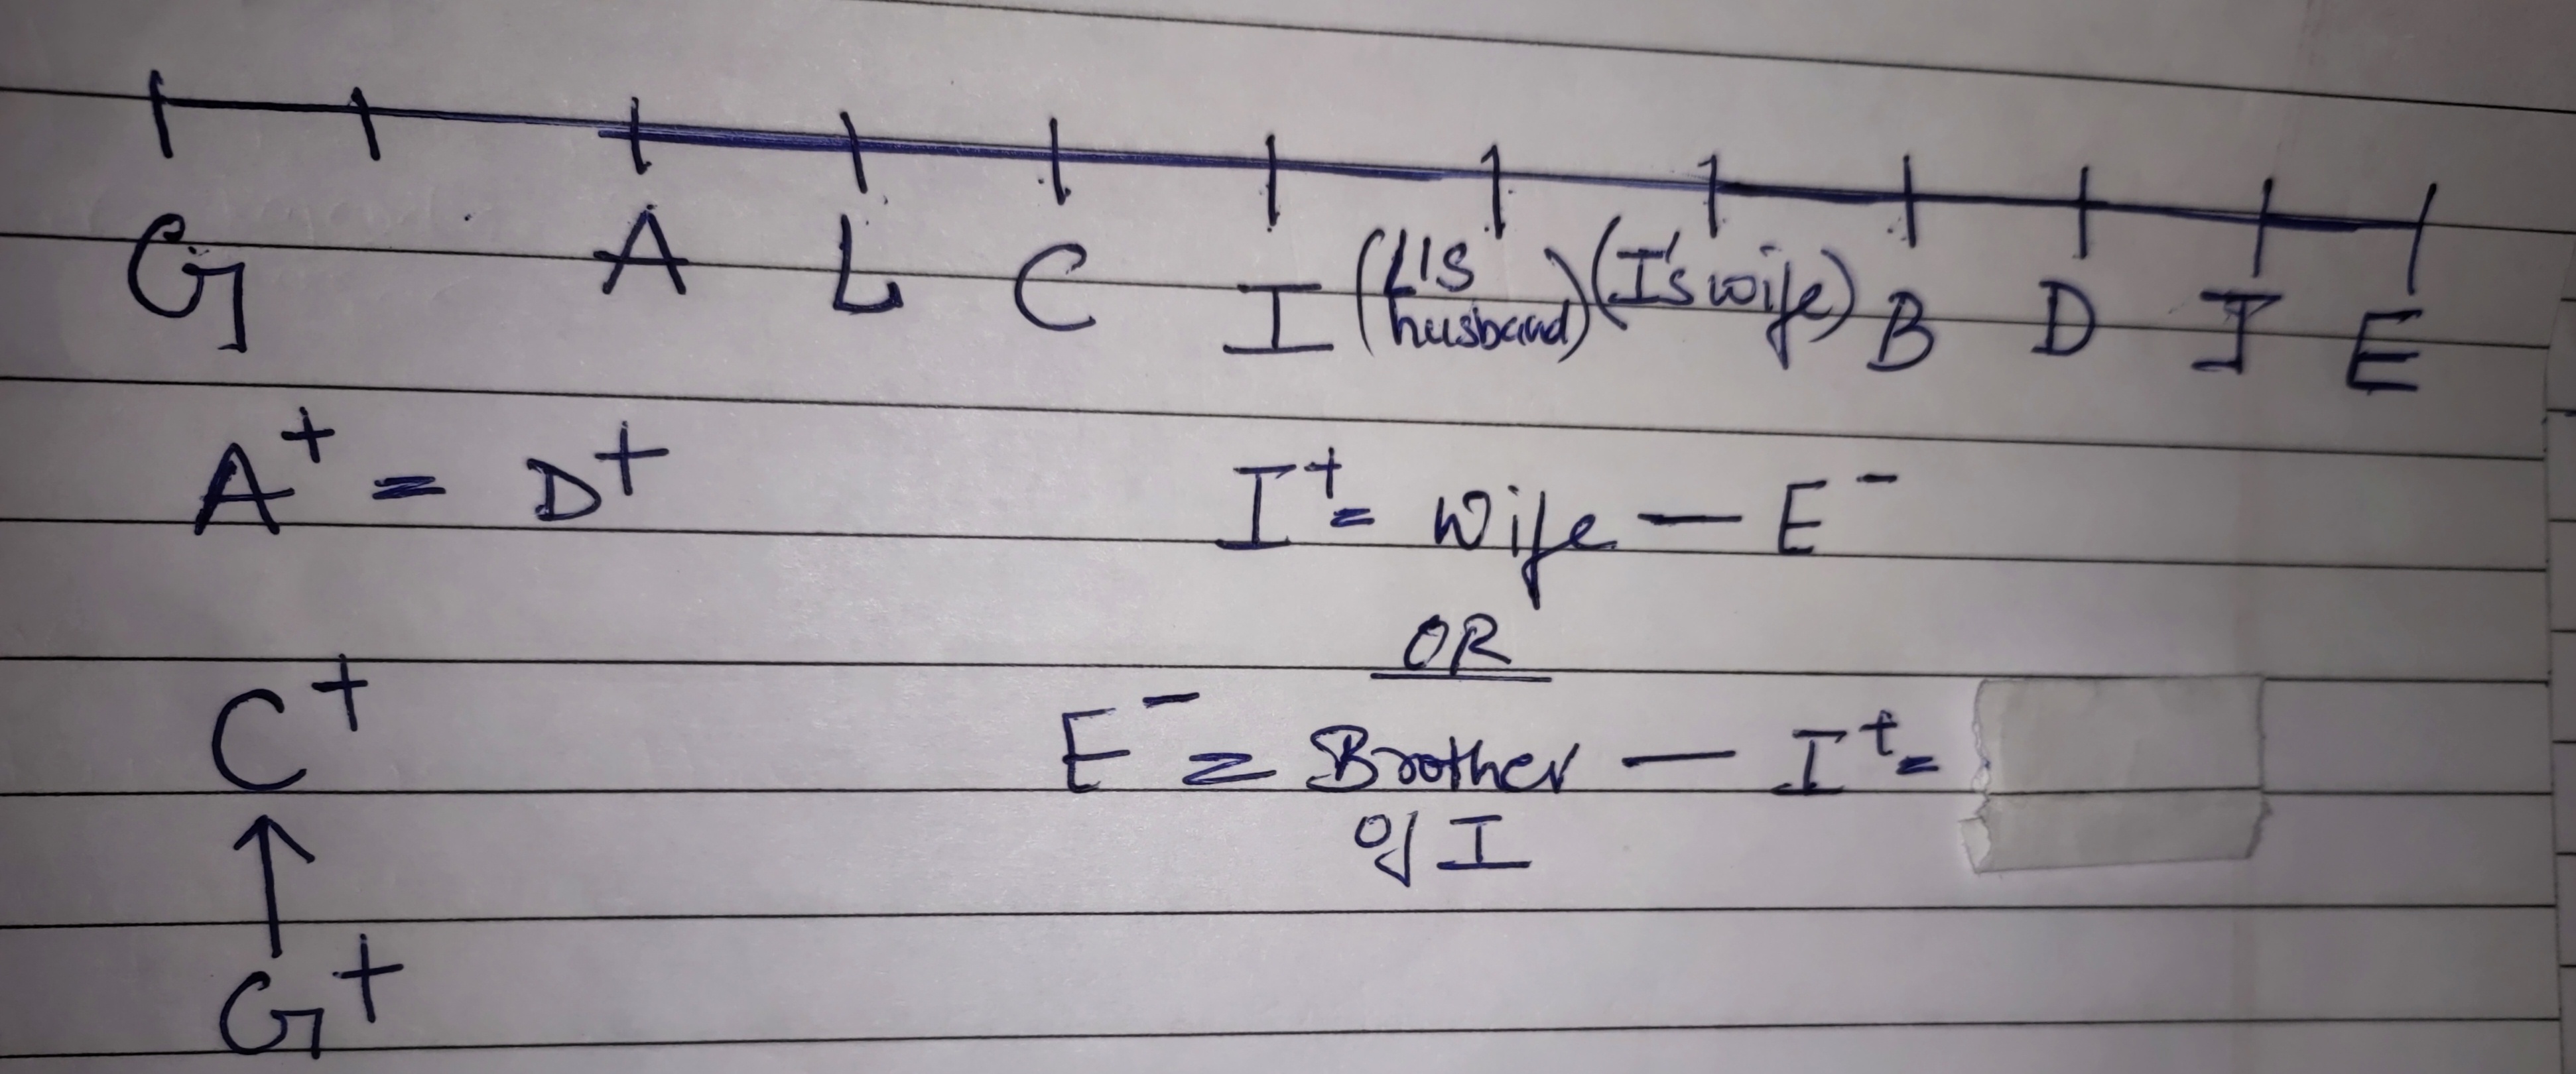 G A L C I (L's husband) (I's wife) B D J E
A+ = D+
I+ = Wife — E-
OR
E- = Brother — I+ =
of I
C+
↑
G+